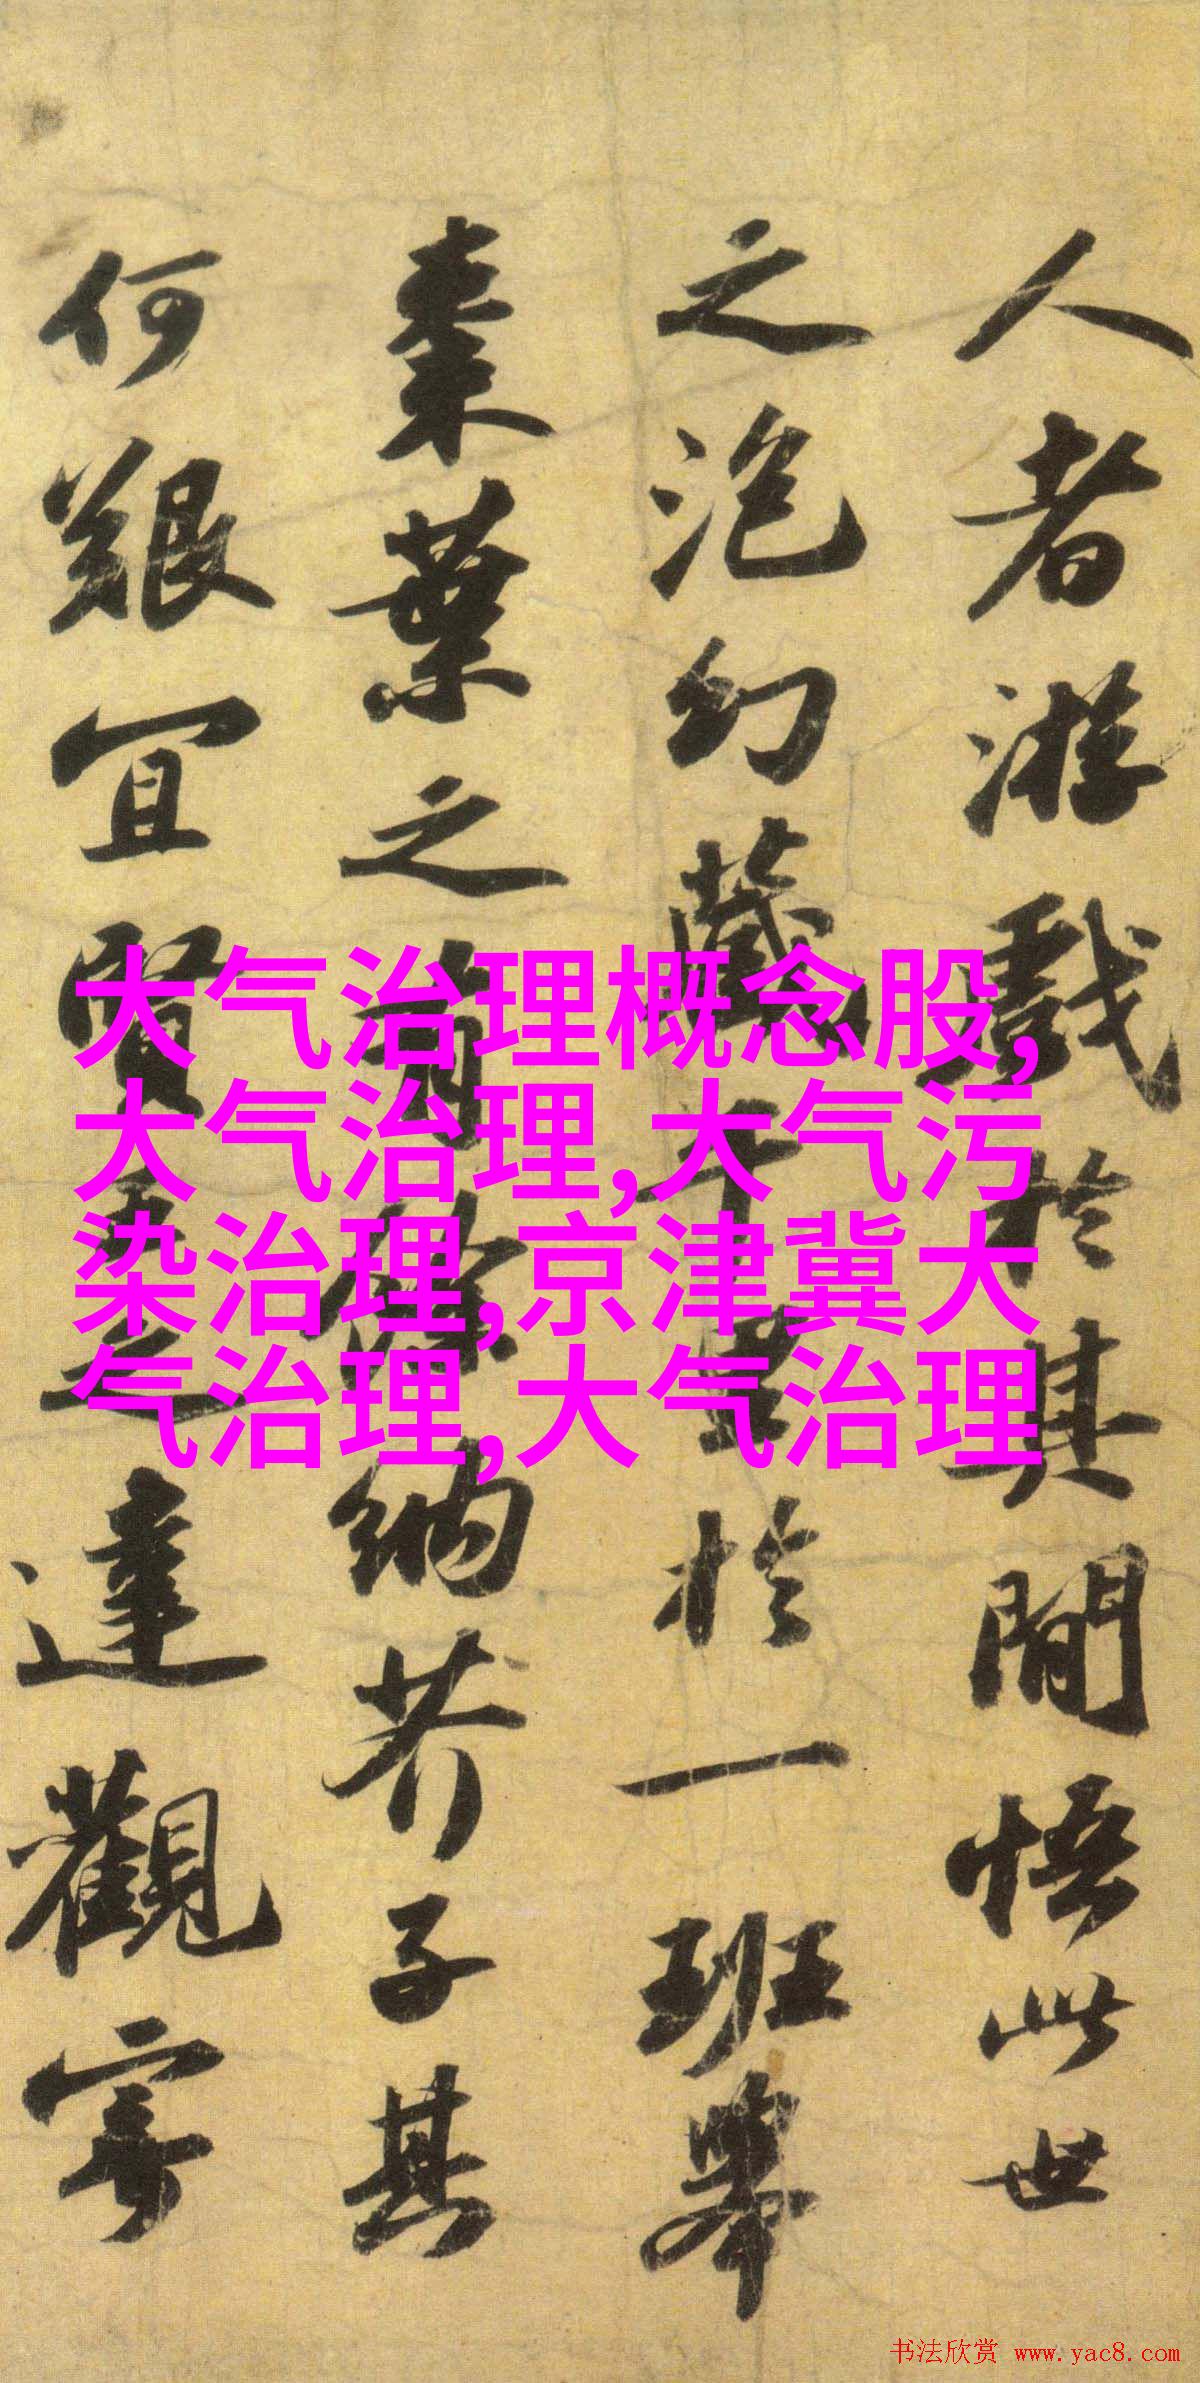 人者游戲於其間悟此世
之泡幻藏千里於一班舉
棗葉之有餘納芥子其
何艱宜賢王之達觀寄
大气治理概念股,
大气治理,大气污
染治理,京津冀大
气治理,大气治理
书法欣赏 www.yac8.com